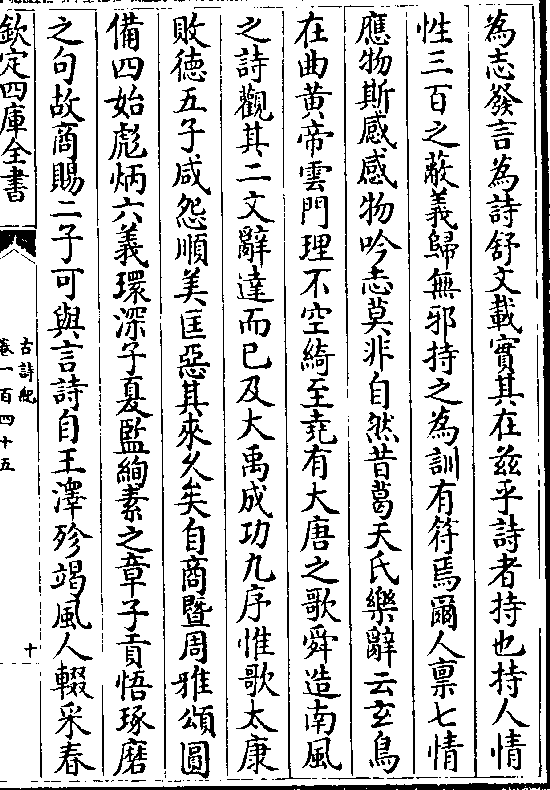 為志發言為詩舒文載實其在茲乎詩者持也持人情
性三百之蔽義歸無邪持之為訓有符焉爾人稟七情
應物斯感感物吟志莫非自然昔葛天氏樂辭云玄鳥
在曲黃帝雲門理不空綺至堯有大唐之歌舜造南風
之詩觀其二文辭達而已及大禹成功九序惟歌太康
敗德五子咸怨順美匡惡其來久矣自商暨周雅頌圓
備四始彪炳六義環深子夏監絢素之章子貢悟琢磨
之句故商賜二子可與言詩自王澤殄竭風人輟采春
欽定四庫全書
古詩紀
卷一百四十五
十